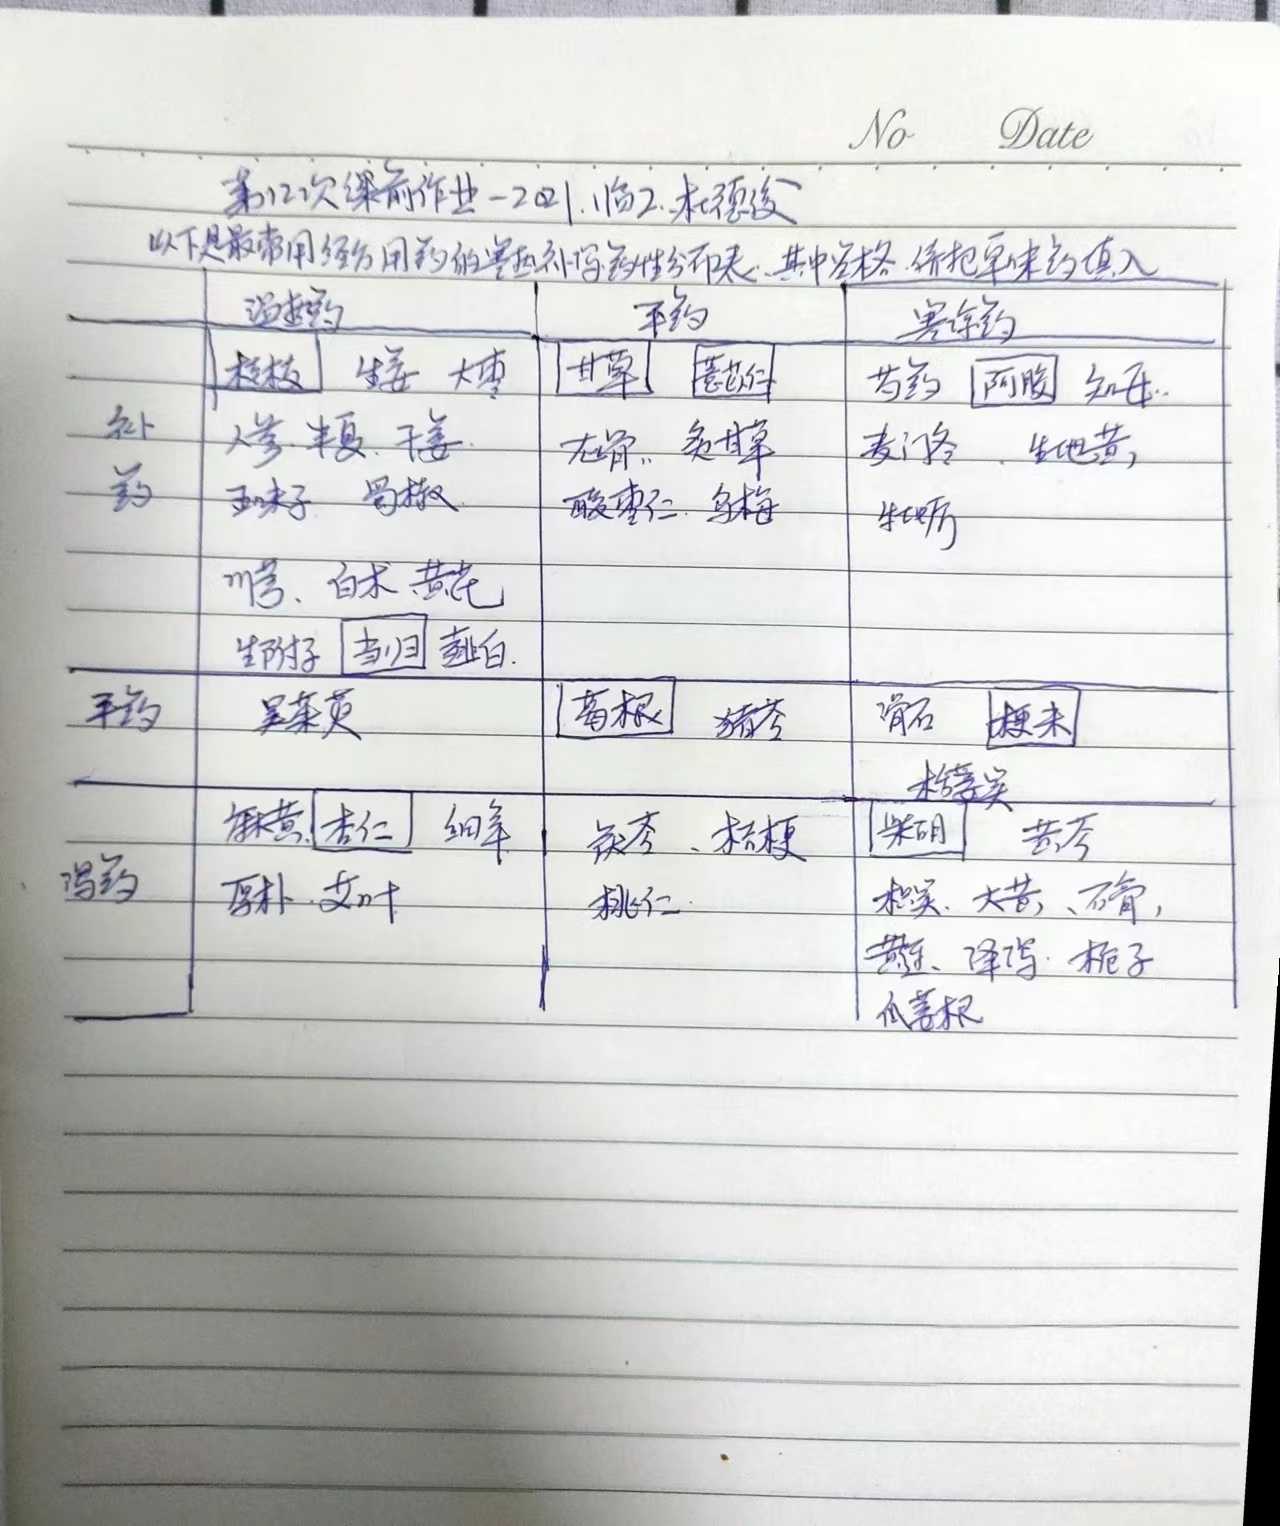 No Date
第12次课前作业-2021.临2.杜德俊
以下是最常用经方用药的寒热补泻药性分布表.其中空格.请把单味药填入
温热药 平药 寒凉药
补药
桂枝 生姜 大枣 甘草 薏苡仁 芍药 阿胶 知母.
人参.半夏.干姜. 龙骨.炙甘草 麦门冬、生地黄,
五味子 蜀椒 酸枣仁.乌梅 牡蛎
川芎、白术.黄芪
生附子 当归 薤白.
平药 吴茱萸 葛根 猪苓 滑石 梗米
栝蒌实
泻药
麻黄.杏仁 细辛 茯苓、桔梗 柴胡 黄芩
厚朴.艾叶 桃仁. 枳实.大黄、石膏,
黄连、泽泻.栀子
瓜蒌根